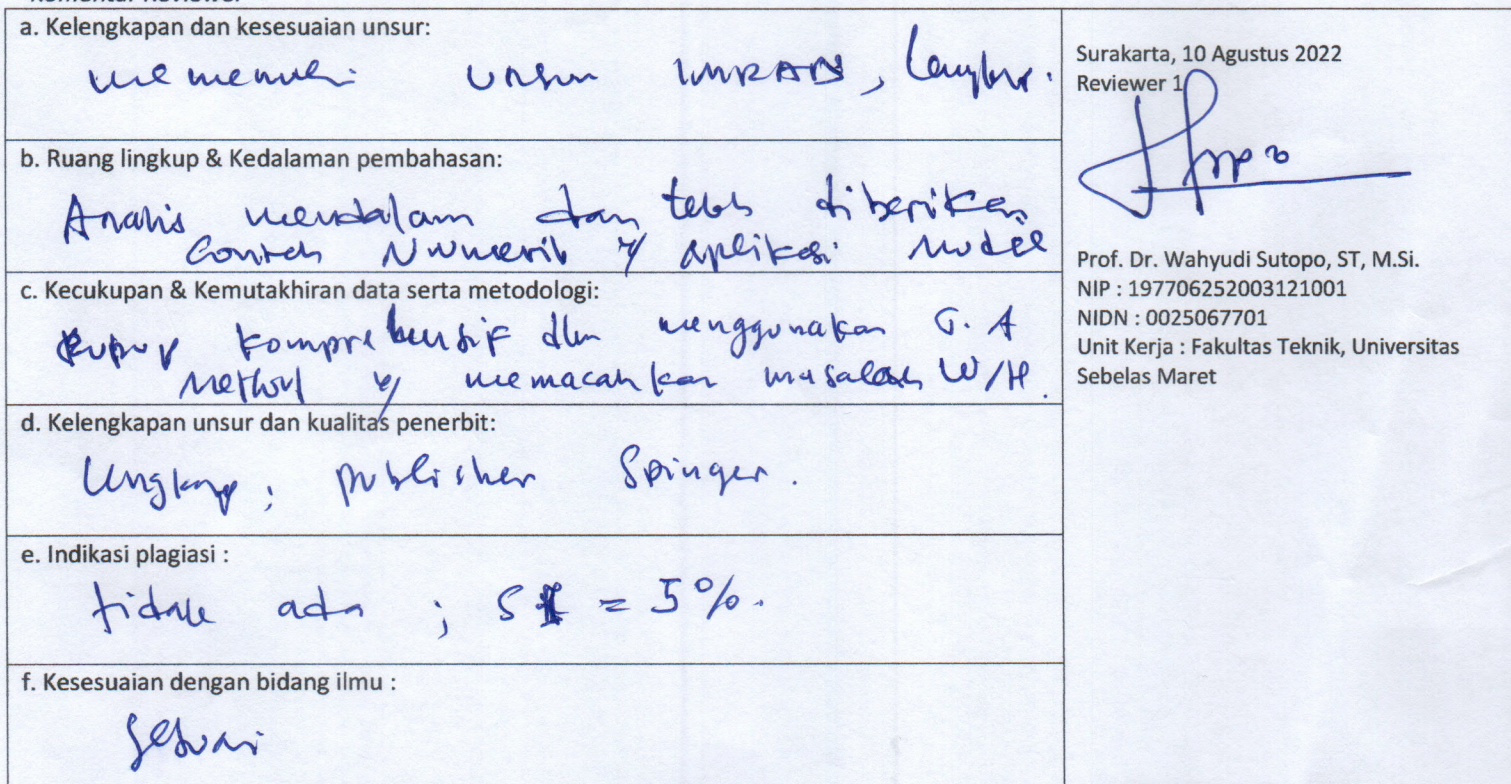 a. Kelengkapan dan kesesuaian unsur:
memenuhi unsur IMRAD, lengkap.
b. Ruang lingkup & Kedalaman pembahasan:
Analis mendalam dan telah diberikan
Contoh Numerik u/ aplikasi Model
c. Kecukupan & Kemutakhiran data serta metodologi:
komprehensif dlm menggunakan G.A
Method u/ memacahkan masalah W/H.
d. Kelengkapan unsur dan kualitas penerbit:
Lengkap, publisher Springer.
e. Indikasi plagiasi :
tidak ada ; SI = 5%.
f. Kesesuaian dengan bidang ilmu :
Sesuai
Surakarta, 10 Agustus 2022
Reviewer 1
Prof. Dr. Wahyudi Sutopo, ST, M.Si.
NIP : 197706252003121001
NIDN : 0025067701
Unit Kerja : Fakultas Teknik, Universitas
Sebelas Maret